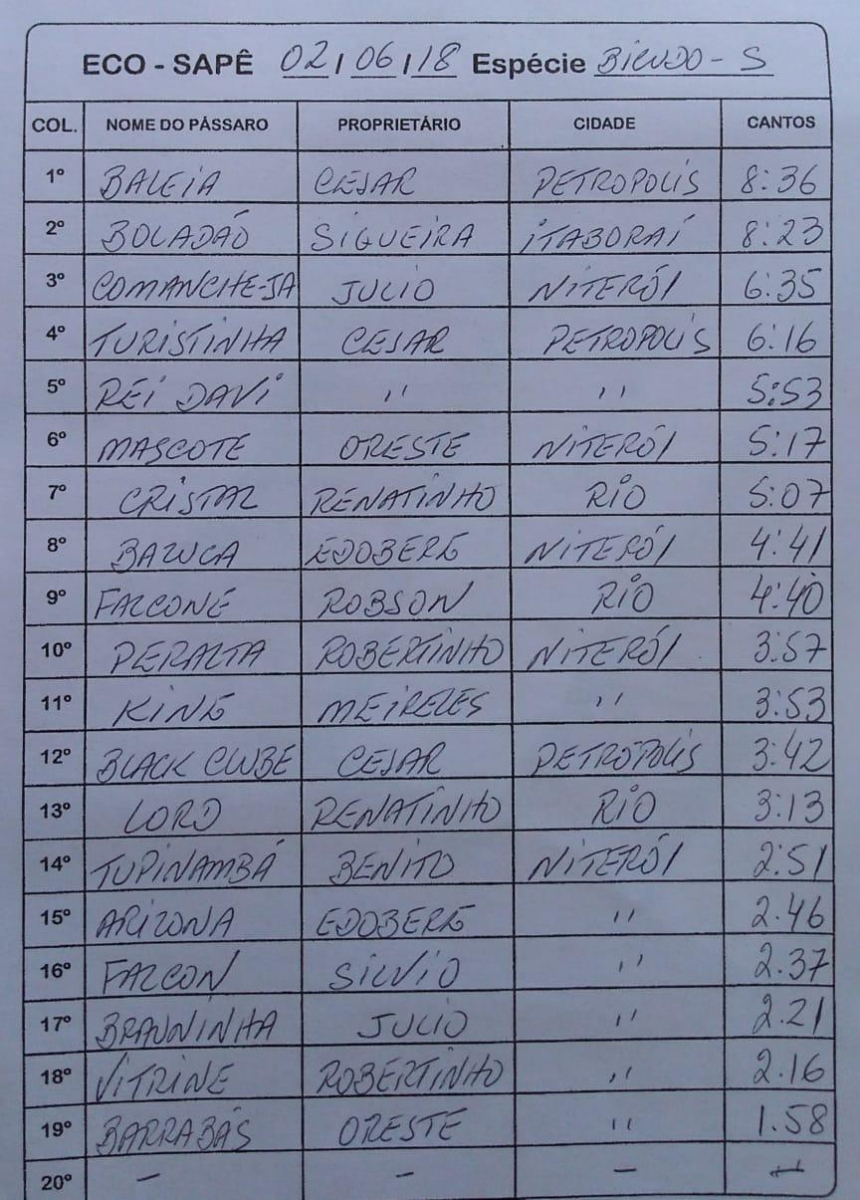 ECO - SAPÊ 02/06/18 Espécie BICUDO - S
COL. NOME DO PÁSSARO PROPRIETÁRIO CIDADE CANTOS
1º BALEIA CESAR PETROPOLIS 8:36
2º BOLADÃO SIQUEIRA ITABORAÍ 8:23
3º COMANCHE-JA JULIO NITERÓI 6:35
4º TURISTINHA CESAR PETROPOLIS 6:16
5º REI DAVI '' '' 5:53
6º MASCOTE ORESTE NITERÓI 5:17
7º CRISTAL RENATINHO RIO 5:07
8º BAZUCA EDOBERG NITERÓI 4:41
9º FALCONE ROBSON RIO 4:40
10º PERALTA ROBERTINHO NITERÓI 3:57
11º KING MEIRELES '' 3:53
12º BLACK CLUBE CESAR PETRÓPOLIS 3:42
13º LORD RENATINHO RIO 3:13
14º TUPINAMBÁ BENITO NITERÓI 2:51
15º ARIZONA EDOBERG '' 2.46
16º FALCON SILVIO '' 2.37
17º BRAUNINHA JULIO '' 2.21
18º VITRINE ROBERTINHO '' 2.16
19º BARRABÁS ORESTE '' 1.58
20º - - - -